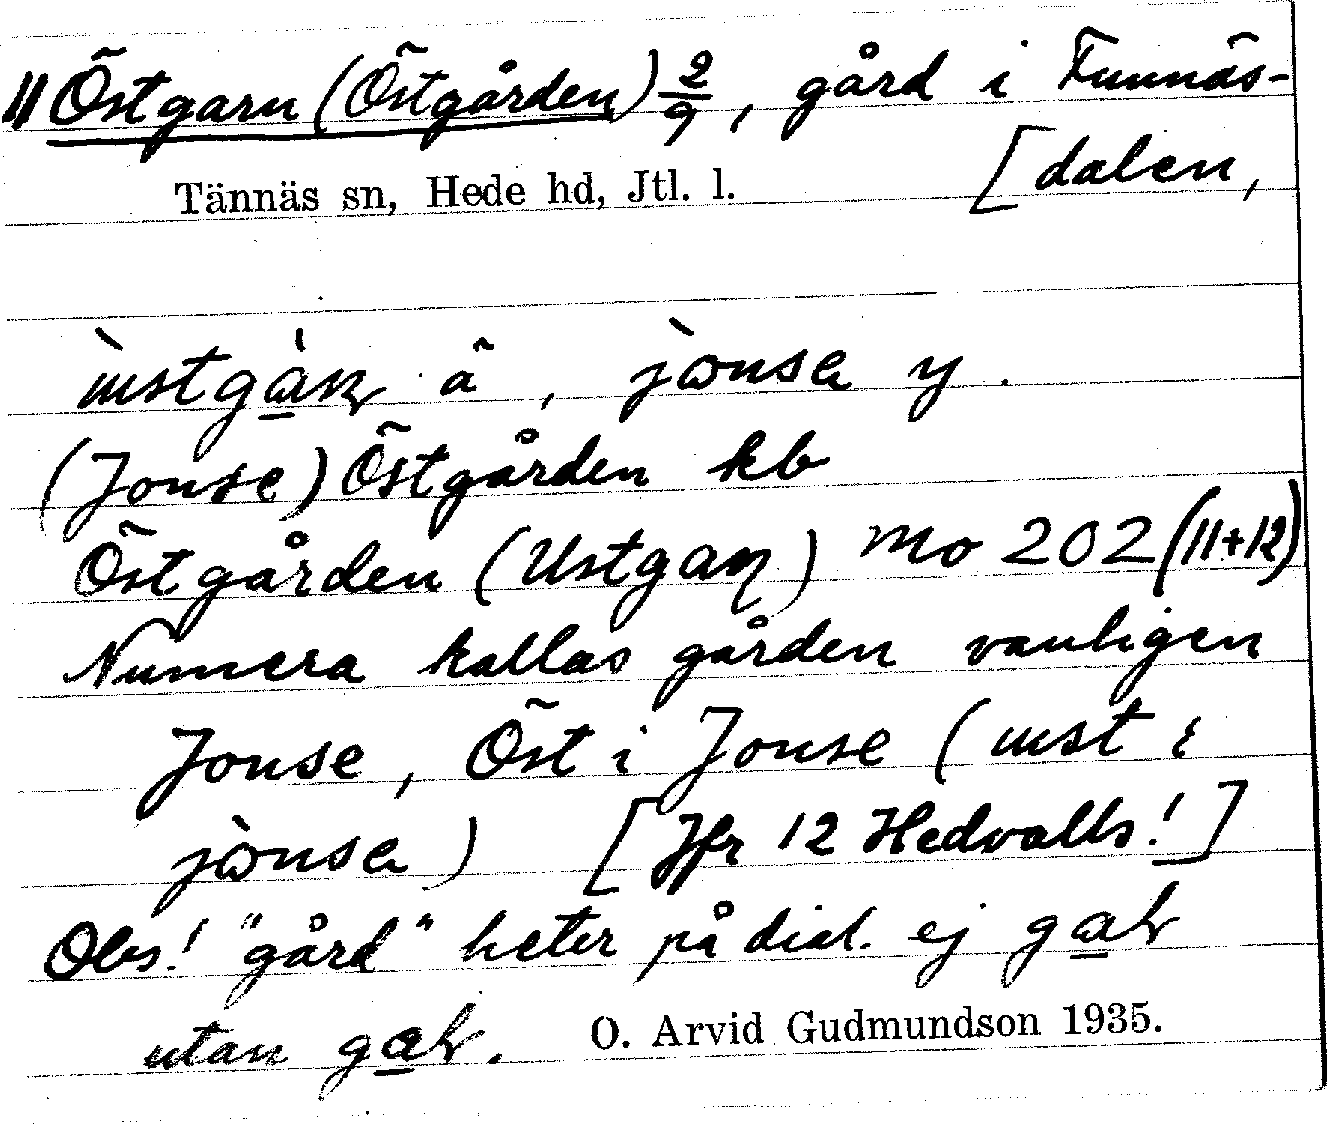 11 Östgarn (Östgården) 2/9, gård i Funnäs-
[dalen,
Tännäs sn, Hede hd, Jtl. l.
ä, jonse y.
(Jonse) Östgården kb
Östgården (Ustgaɳ) Mo 202 (11+12)
Numera kallas gården vanligen
Jonse, Öst i Jonse (
jonse) [Jfr 12 Hedvalls!]
Obs! "gård" heter på dial. ej
utan
O. Arvid Gudmundson 1935.